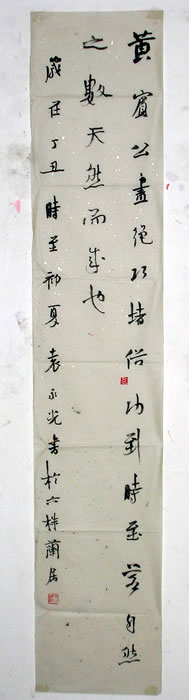 黃賓公畫絕巧持俗功到時至若自然
之數天然而成也
歲在丁丑時至初夏袁永光書於六株蘭居